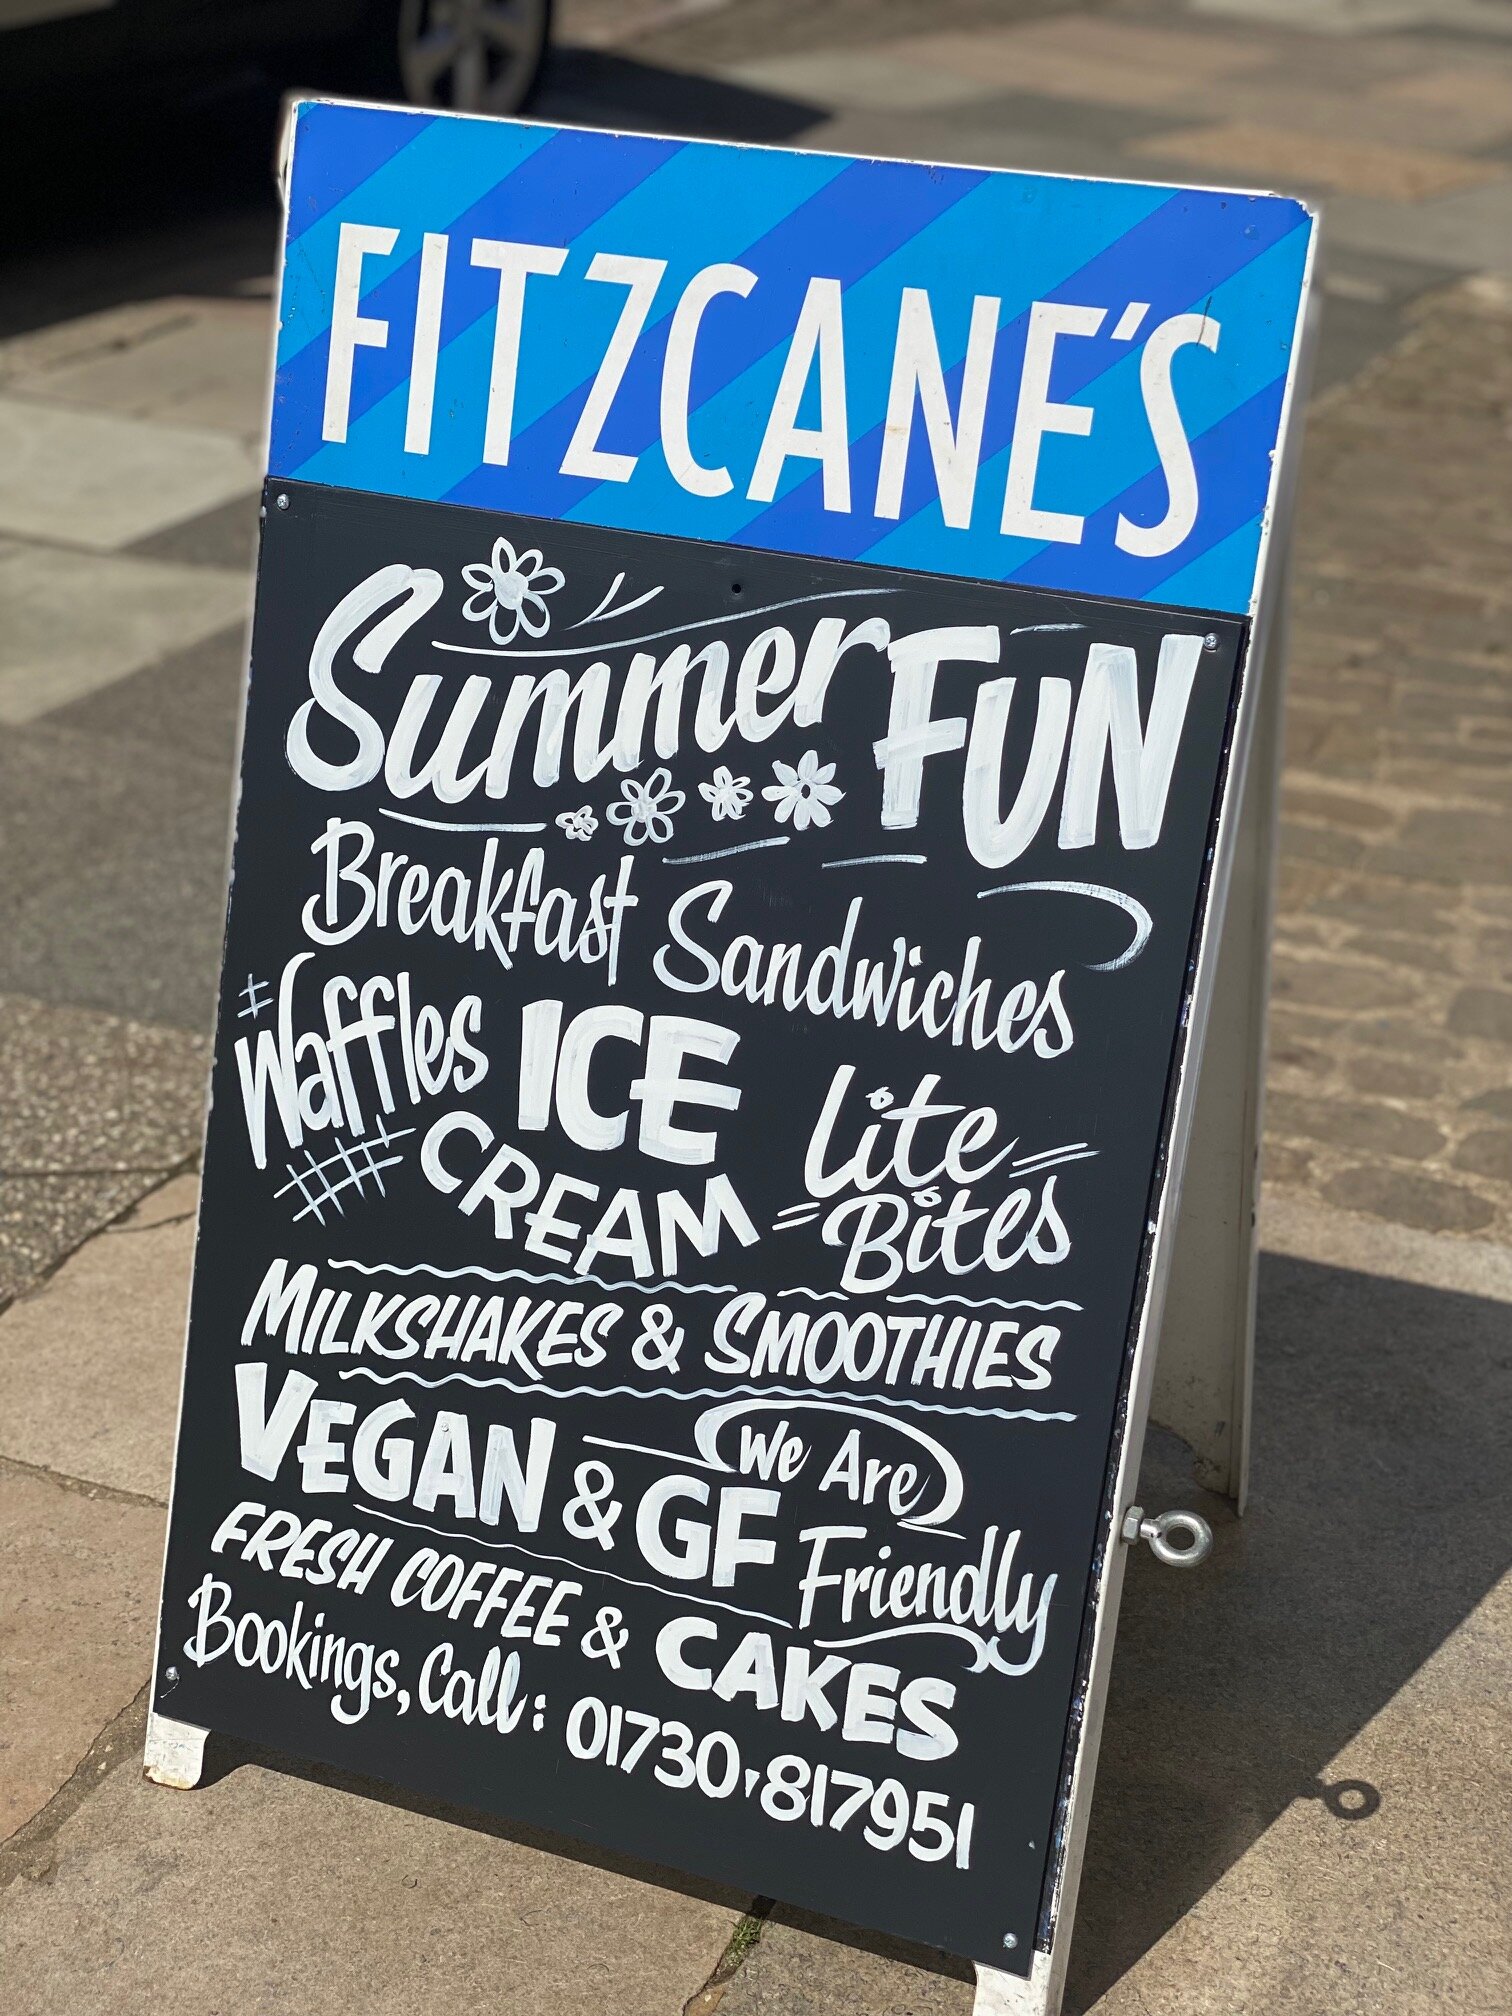 FITZCANE'S
Summer FUN
Breakfast Sandwiches
Waffles
ICE
CREAM
Lite
Bites
MILKSHAKES & SMOOTHIES
VEGAN & GF
We Are
Friendly
FRESH COFFEE & CAKES
Bookings, Call: 01730·817951